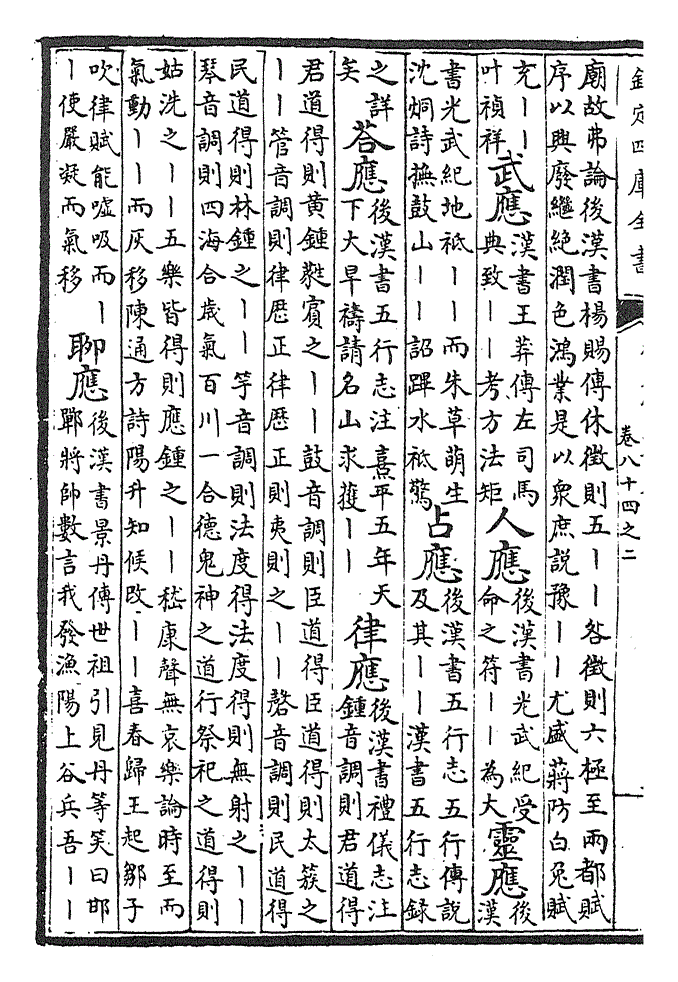 欽定四庫全書
卷八十四之二
廟故弗論後漢書楊賜傳休徵則五丨丨咎徵則六極至兩都賦
序以興廢繼絕潤色鴻業是以衆庶說豫丨丨尤盛蔣防白兔賦
充丨丨叶禎祥 武應 漢書王莽傳左司馬典致丨丨考方法矩 人應 後漢書光武紀受命之符丨丨為大 靈應 後漢
書光武紀地祗丨丨而朱草萌生沈烱詩撫鼓山丨丨詔蹕水祗驚 占應 後漢書五行志五行傳說及其丨丨漢書五行志錄
之詳矣 荅應 後漢書五行志注熹平五年天下大旱禱請名山求獲丨丨 律應 後漢書禮儀志注鍾音調則君道得
君道得則黃鍾蕤賓之丨丨鼓音調則臣道得臣道得則太蔟之
丨丨管音調則律歴正律歴正則夷則之丨丨磬音調則民道得
民道得則林鍾之丨丨竽音調則法度得法度得則無射之丨丨
琴音調則四海合歲氣百川一合德鬼神之道行祭祀之道得則
姑洗之丨丨五樂皆得則應鍾之丨丨嵇康聲無哀樂論時至而
氣動丨丨而灰移陳通方詩陽升知候改丨丨喜春歸王起鄒子
吹律賦能噓吸而丨丨使嚴凝而氣移 聊應 後漢書景丹傳世祖引見丹等笑曰邯鄲將帥數言我發漁陽上谷兵吾丨丨